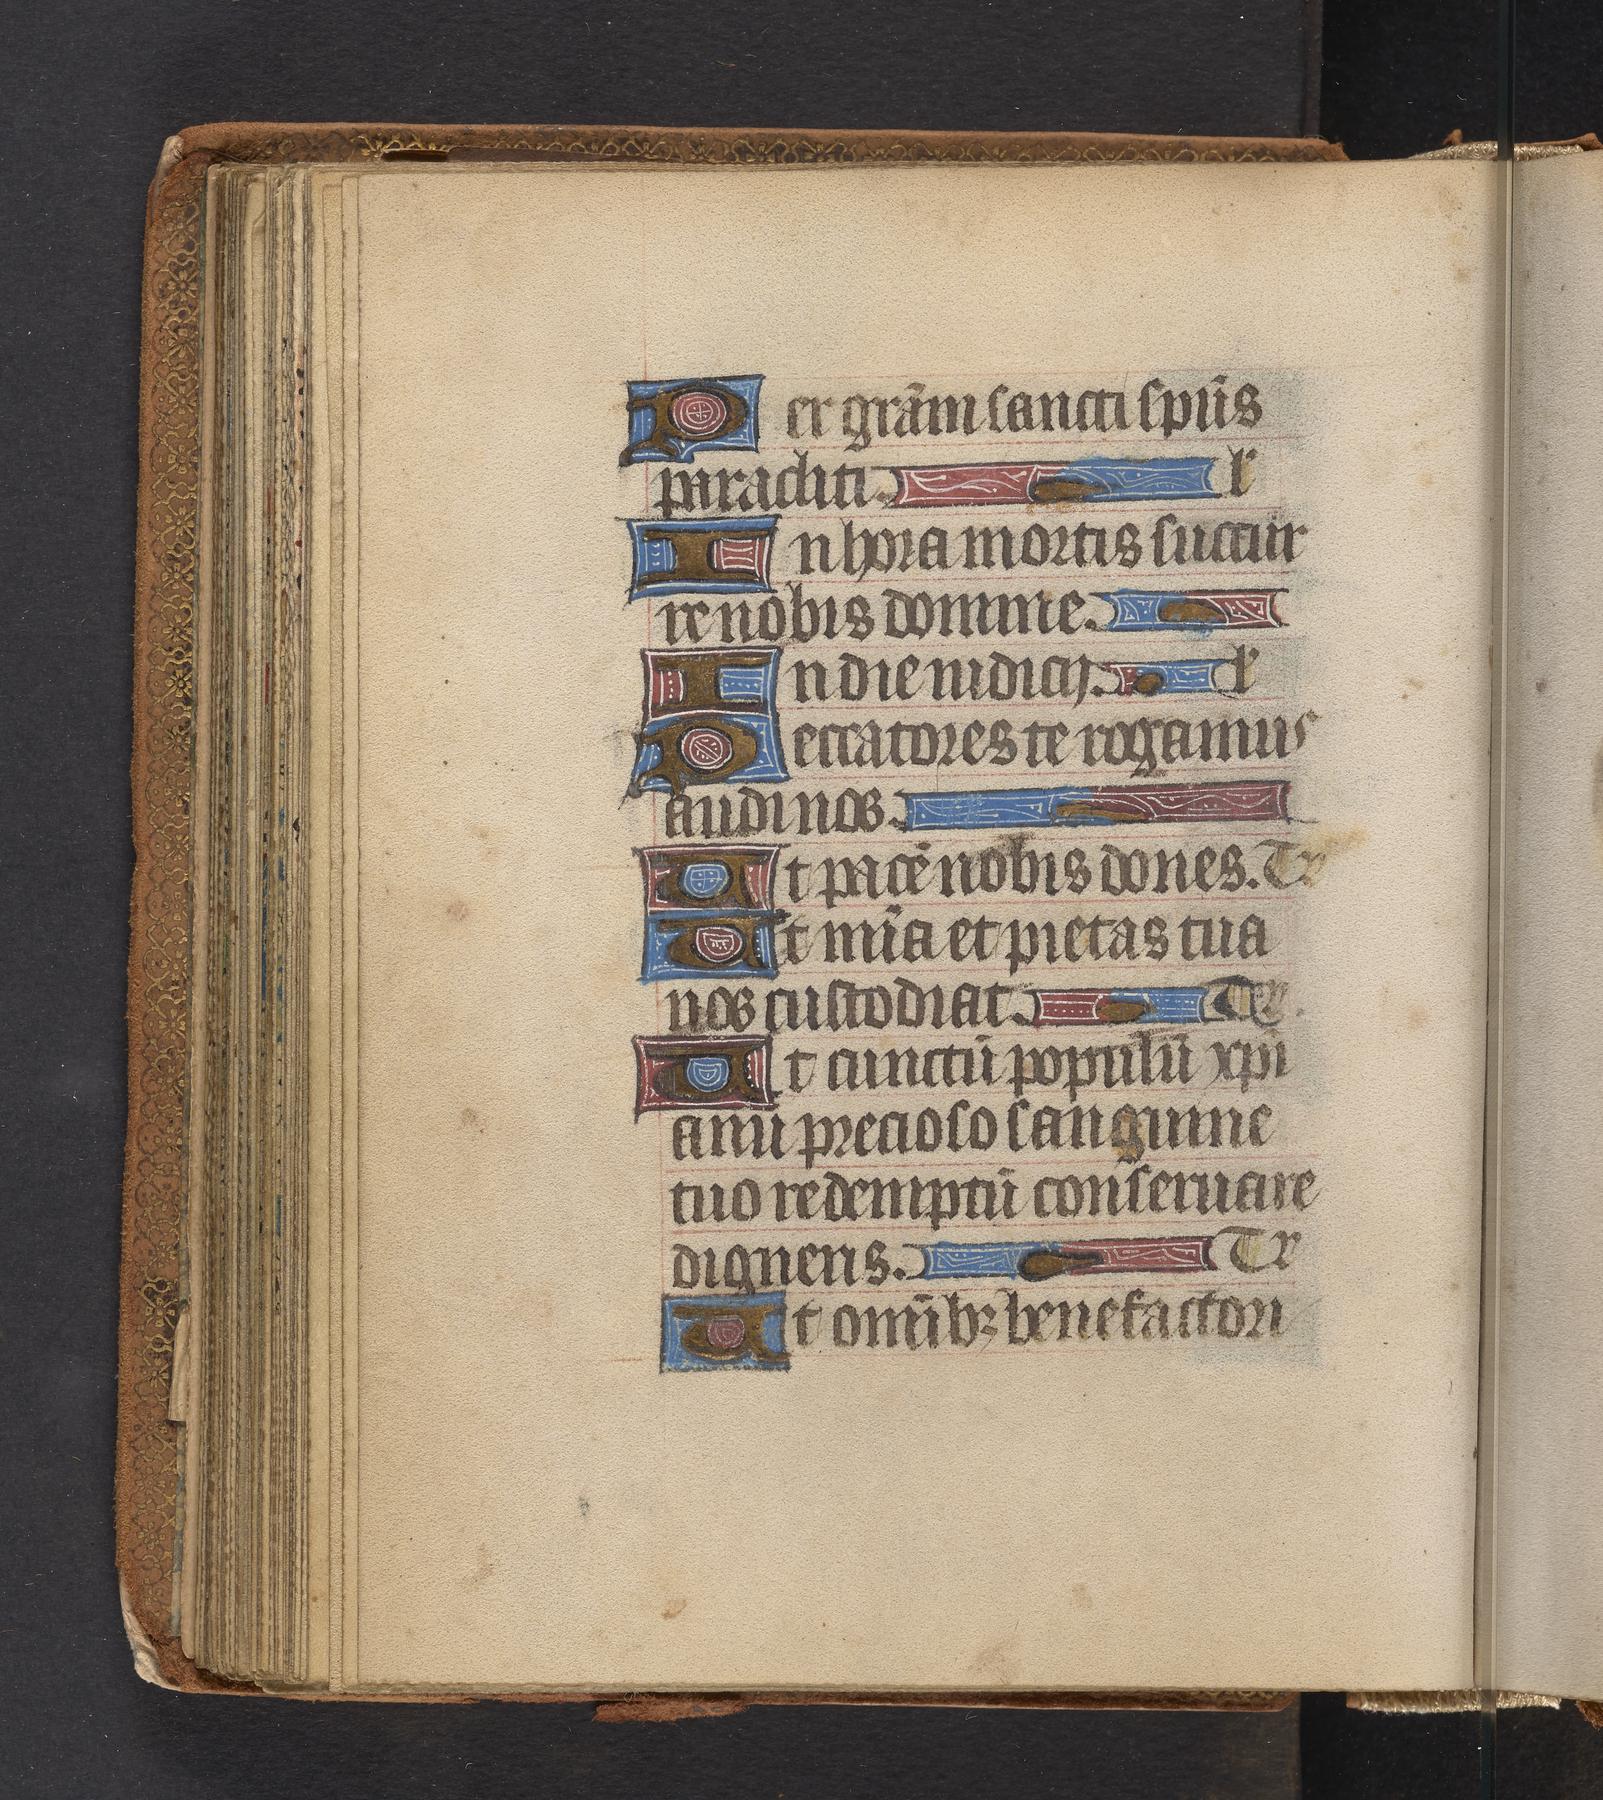 Per grām sancti spūs
paracliti. l'
In hora mortis succur
re nobis domine.
In die iudicij. l'
Peccatores te rogamus
audi nos.
Ut pacē nobis dones. Te r
Ut mīa et pietas tua
nos custodiat. Te r.
Ut cunctū populū xpi
anū precioso sanguine
tuo redemptū conseruare
digneris. Te r
Ut omībꝫ benefactori